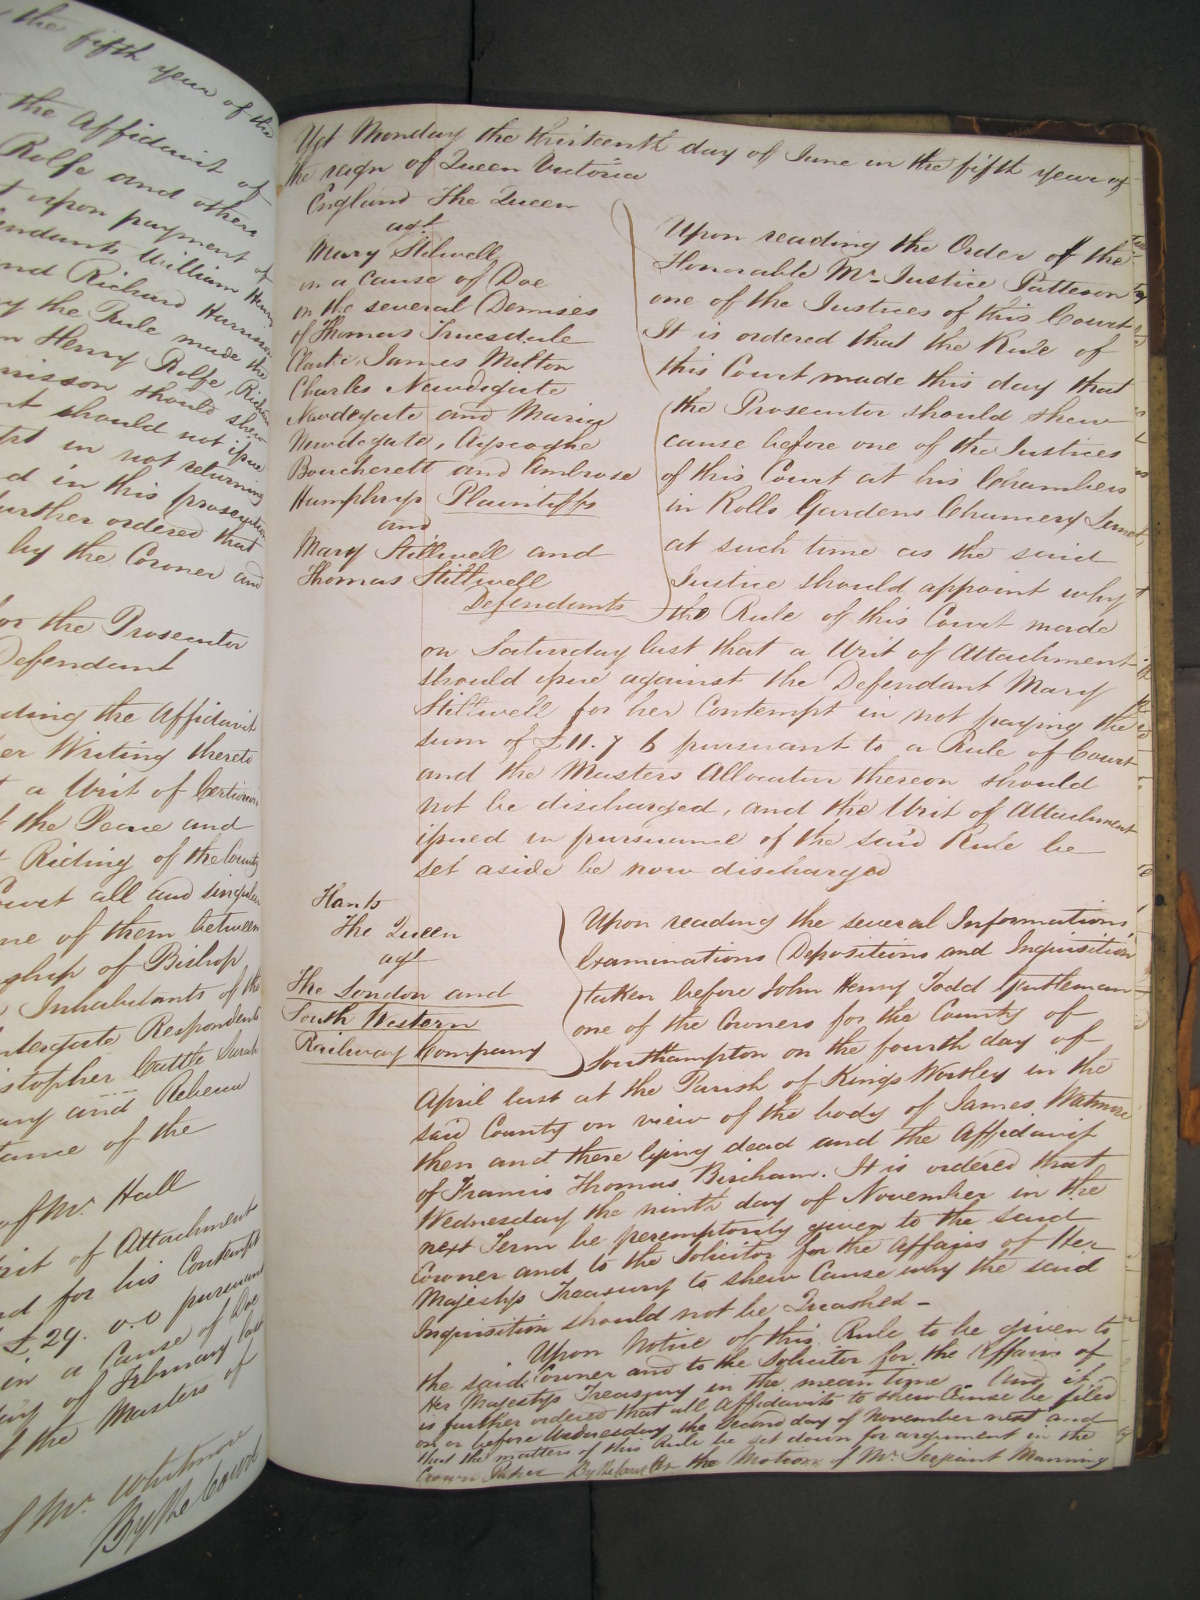 the fifth year of the
the Affidavit of
Rolfe and others
upon payment of
William Henry
and Richard Harrison
the Rule made the
Henry Rolfe, Richard
should shew
should not issue
in not returning
in this prosecution
further ordered that
by the Coroner and
for the Prosecutor
Defendant
the Affidavit
Writing thereto
a Writ of Certiorari
the Peace and
Riding of the County
all and singular
of them between
of Bishop
Inhabitants of the
Respondents
Sarah
and Rebecca
of the
of Mr. Hall
of Attachment
for his Contempt
£29. 0. 0 pursuant
in a Cause of Doe
of February last
the Masters of
Mr. Whitmore
By the Court
Yet Monday the thirteenth day of June in the fifth year of
the reign of Queen Victoria
England The Queen
agt
Mary Stilwell
in a cause of Doe
on the several Demises
of Thomas Truesdale
Clarke, James Milton
Charles Newdegate
Newdegate and Maria
Newdegate, Ayscoghe
Boucherett and Ambrose
Humphrys Plaintiffs
and
Mary Stillwell and
Thomas Stillwell
Defendants
Upon reading the Order of the
Honorable Mr. Justice Patteson
one of the Justices of this Court
It is ordered that the Rule of
this Court made this day that
the Prosecutor should shew
cause before one of the Justices
of this Court at his Chambers
in Rolls Gardens Chancery Lane
at such time as the said
Justice should appoint why
the Rule of this Court made
on Saturday last that a Writ of Attachment
should issue against the Defendant Mary
Stillwell for her Contempt in not paying the
sum of £11. 7 6 pursuant to a Rule of Court
and the Masters Allocatur thereon should
not be discharged, and the Writ of Attachment
issued in pursuance of the said Rule be
set aside be now discharged
Hants
The Queen
agt
The London and
South Western
Railway Company
Upon reading the several Informations
Examinations Depositions and Inquisition
taken before John Henry Todd Gentleman
one of the Coroners for the County of
Southampton on the fourth day of
April last at the Parish of Kings Wortley in the
said County on view of the body of James
then and there lying dead and the Affidavit
of Francis Thomas Bircham. It is ordered that
Wednesday the ninth day of November in the
next Term be peremptorily given to the said
Coroner and to the Solicitor for the Affairs of Her
Majestys Treasury to shew Cause why the said
Inquisition should not be Quashed –
Upon Notice of this Rule to be given to
the said Coroner and to the Solicitor for the Affairs of
Her Majestys Treasury in the mean time – And it
is further ordered that all Affidavits to shew Cause be filed
on or before Wednesday the Second day of November next and
that the matters of this Rule be set down for argument in the
Crown Paper By the Court On the Motion of Mr. Serjeant Manning